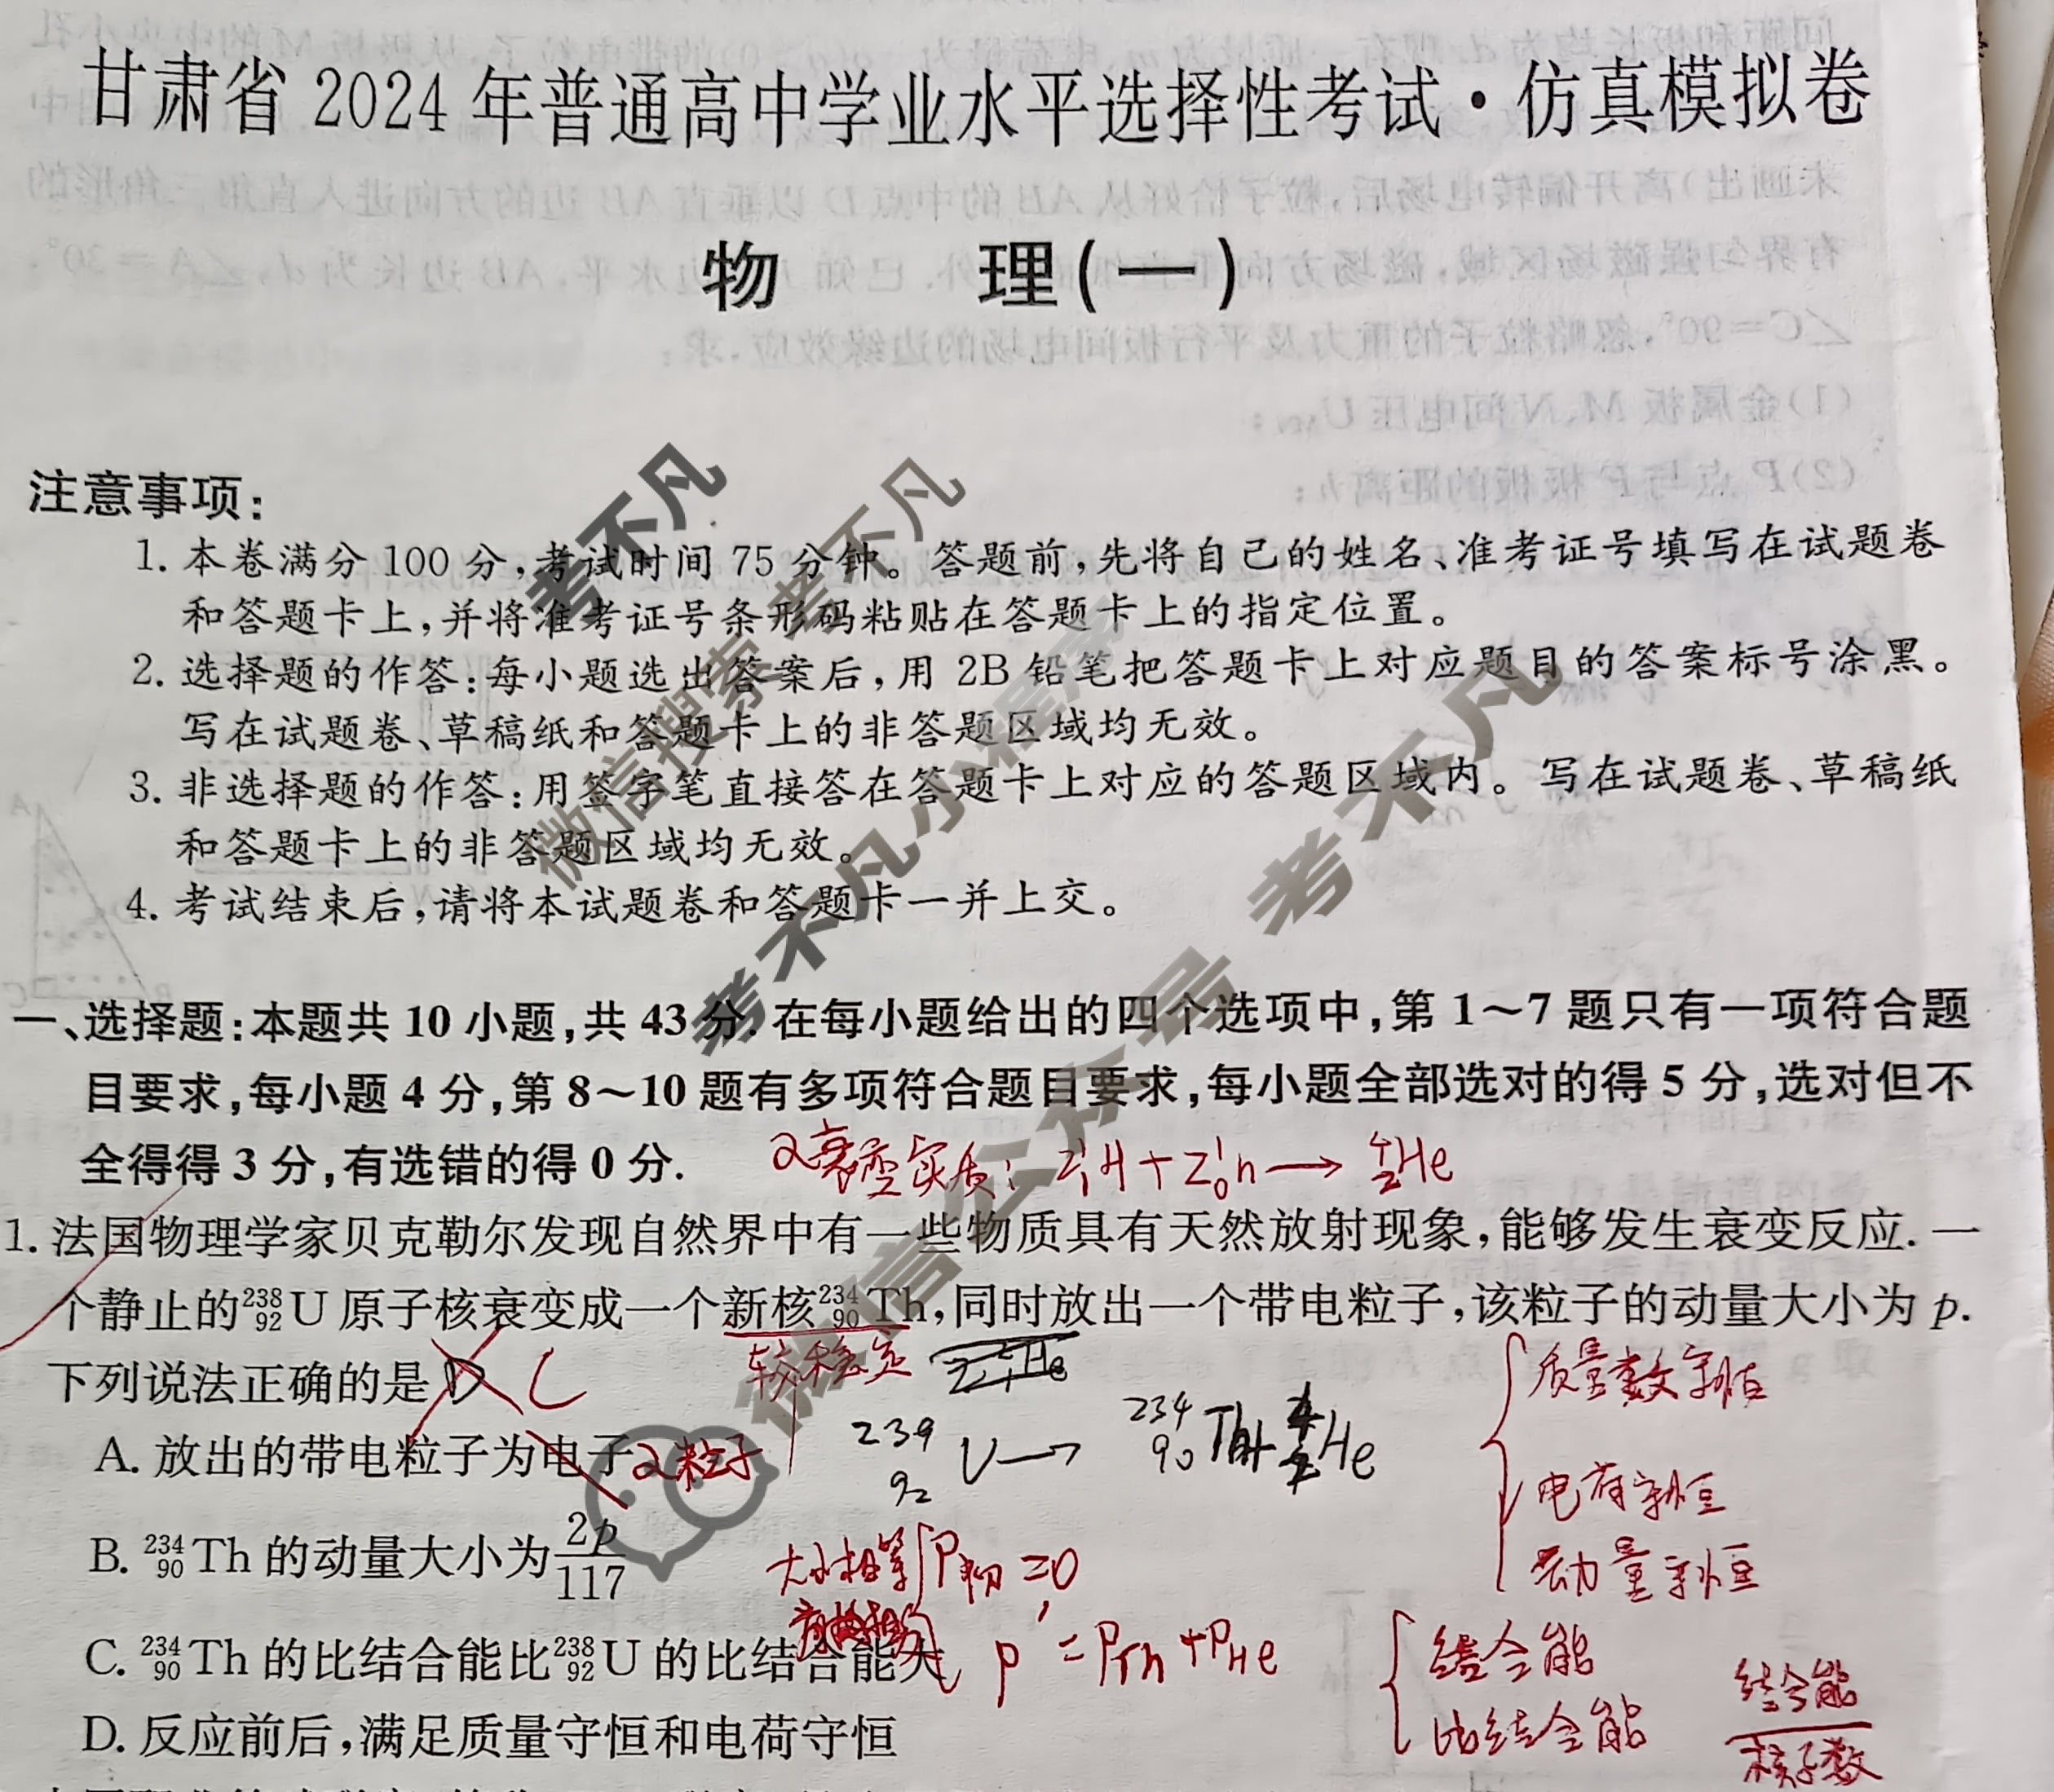 甘肃省 2024 年普通高中学业水平选择性考试·仿真模拟卷
物 理(一)
注意事项:
1. 本卷满分 100 分,考试时间 75 分钟。答题前,先将自己的姓名、准考证号填写在试题卷
和答题卡上,并将准考证号条形码粘贴在答题卡上的指定位置。
2. 选择题的作答:每小题选出答案后,用 2B 铅笔把答题卡上对应题目的答案标号涂黑。
写在试题卷、草稿纸和答题卡上的非答题区域均无效。
3. 非选择题的作答:用签字笔直接答在答题卡上对应的答题区域内。写在试题卷、草稿纸
和答题卡上的非答题区域均无效。
4. 考试结束后,请将本试题卷和答题卡一并上交。
考不凡
微信搜索 考不凡
考不凡小程序
微信公众号 考不凡
一、选择题:本题共 10 小题,共 43 分. 在每小题给出的四个选项中,第 1~7 题只有一项符合题
目要求,每小题 4 分,第 8~10 题有多项符合题目要求,每小题全部选对的得 5 分,选对但不
全得得 3 分,有选错的得 0 分.
α衰变实质: 2¹₁H + 2¹₀n → ⁴₂He
1. 法国物理学家贝克勒尔发现自然界中有一些物质具有天然放射现象,能够发生衰变反应. 一
个静止的²³⁸₉₂U 原子核衰变成一个新核²³⁴₉₀Th,同时放出一个带电粒子,该粒子的动量大小为 p.
下列说法正确的是 D C
较稳定
质量数守恒
A. 放出的带电粒子为电子 α粒子
²³⁹₉₂U → ²³⁴₉₀Th+⁴₂He
电荷守恒
B. ²³⁴₉₀Th 的动量大小为 2p/117
大小相等
P初=0
动量守恒
C. ²³⁴₉₀Th 的比结合能比²³⁸₉₂U 的比结合能大
p'=PTh+PHe
结合能
比结合能
结合能/核子数
D. 反应前后,满足质量守恒和电荷守恒